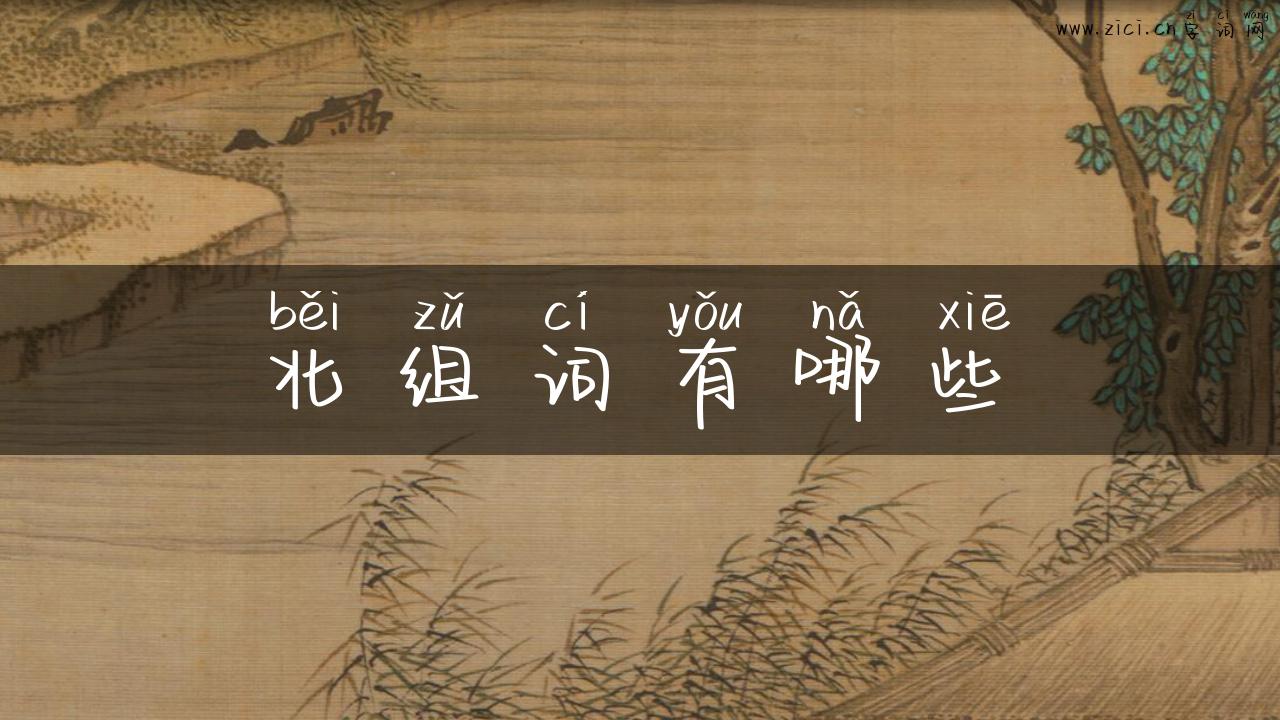 zì cí wǎng
www.zici.cn字词网
běi zǔ cí yǒu nǎ xiē
北组词有哪些